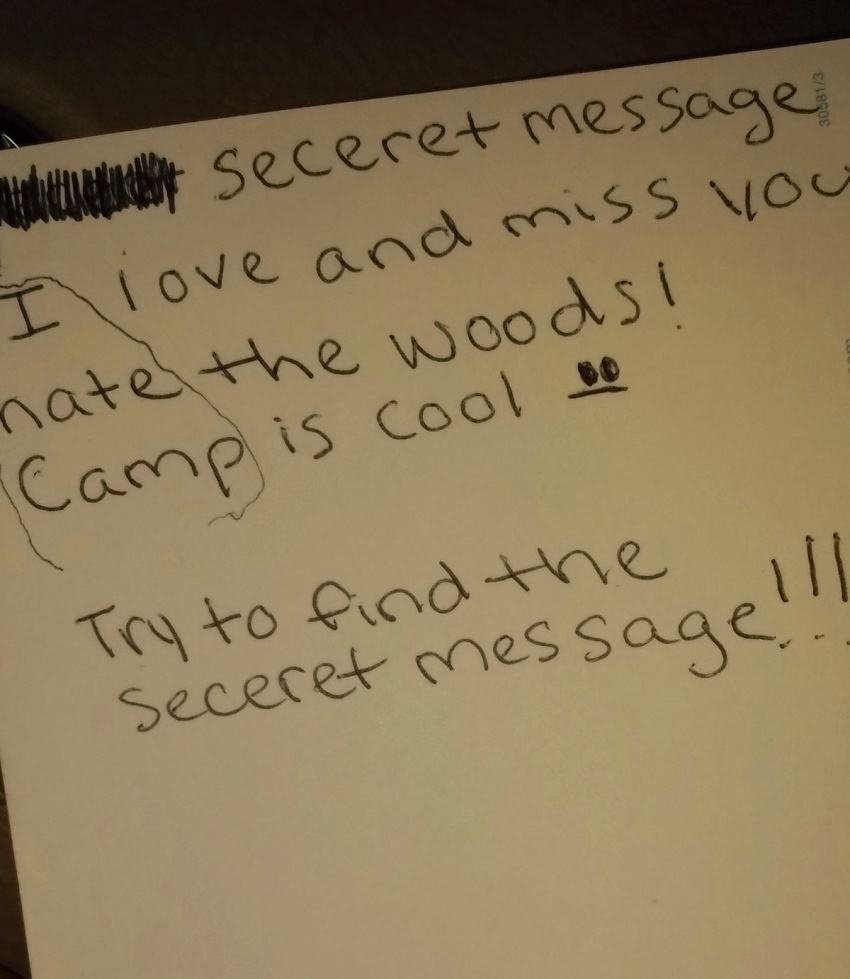 seceret message
30581/3
I love and miss you
hate the woods!
Camp is cool
Try to find the
seceret message!!!